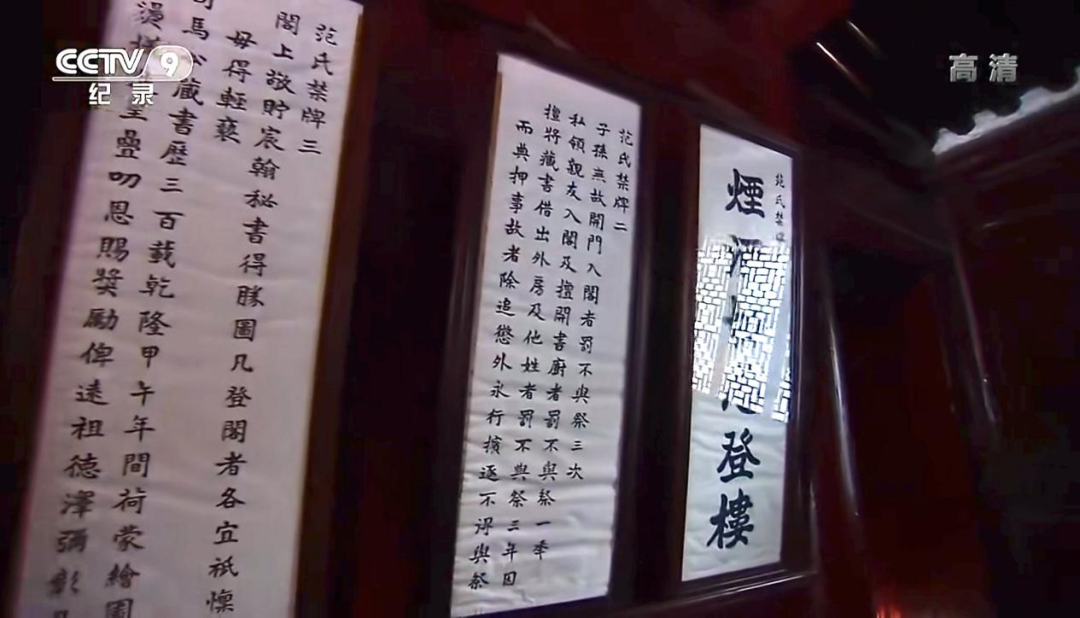 CCTV 9
纪录
高清
范氏禁牌
煙登樓
范氏禁牌二
子孫無故開門入閣者罰不與祭三次
私領親友入閣及擅開書廚者罰不與祭一年
擅將藏書借出外房及他姓者罰不與祭三年因
而典押事故者除追懲外永行擯逐不得與祭
范氏禁牌三
閣上敬貯宸翰秘書得勝圖凡登閣者各宜祇懍
毋得輕褻
司馬公藏書歷三百載乾隆甲午年間荷蒙繪圖
燙呈疊叨恩賜獎勵俾遠祖德澤彌彰